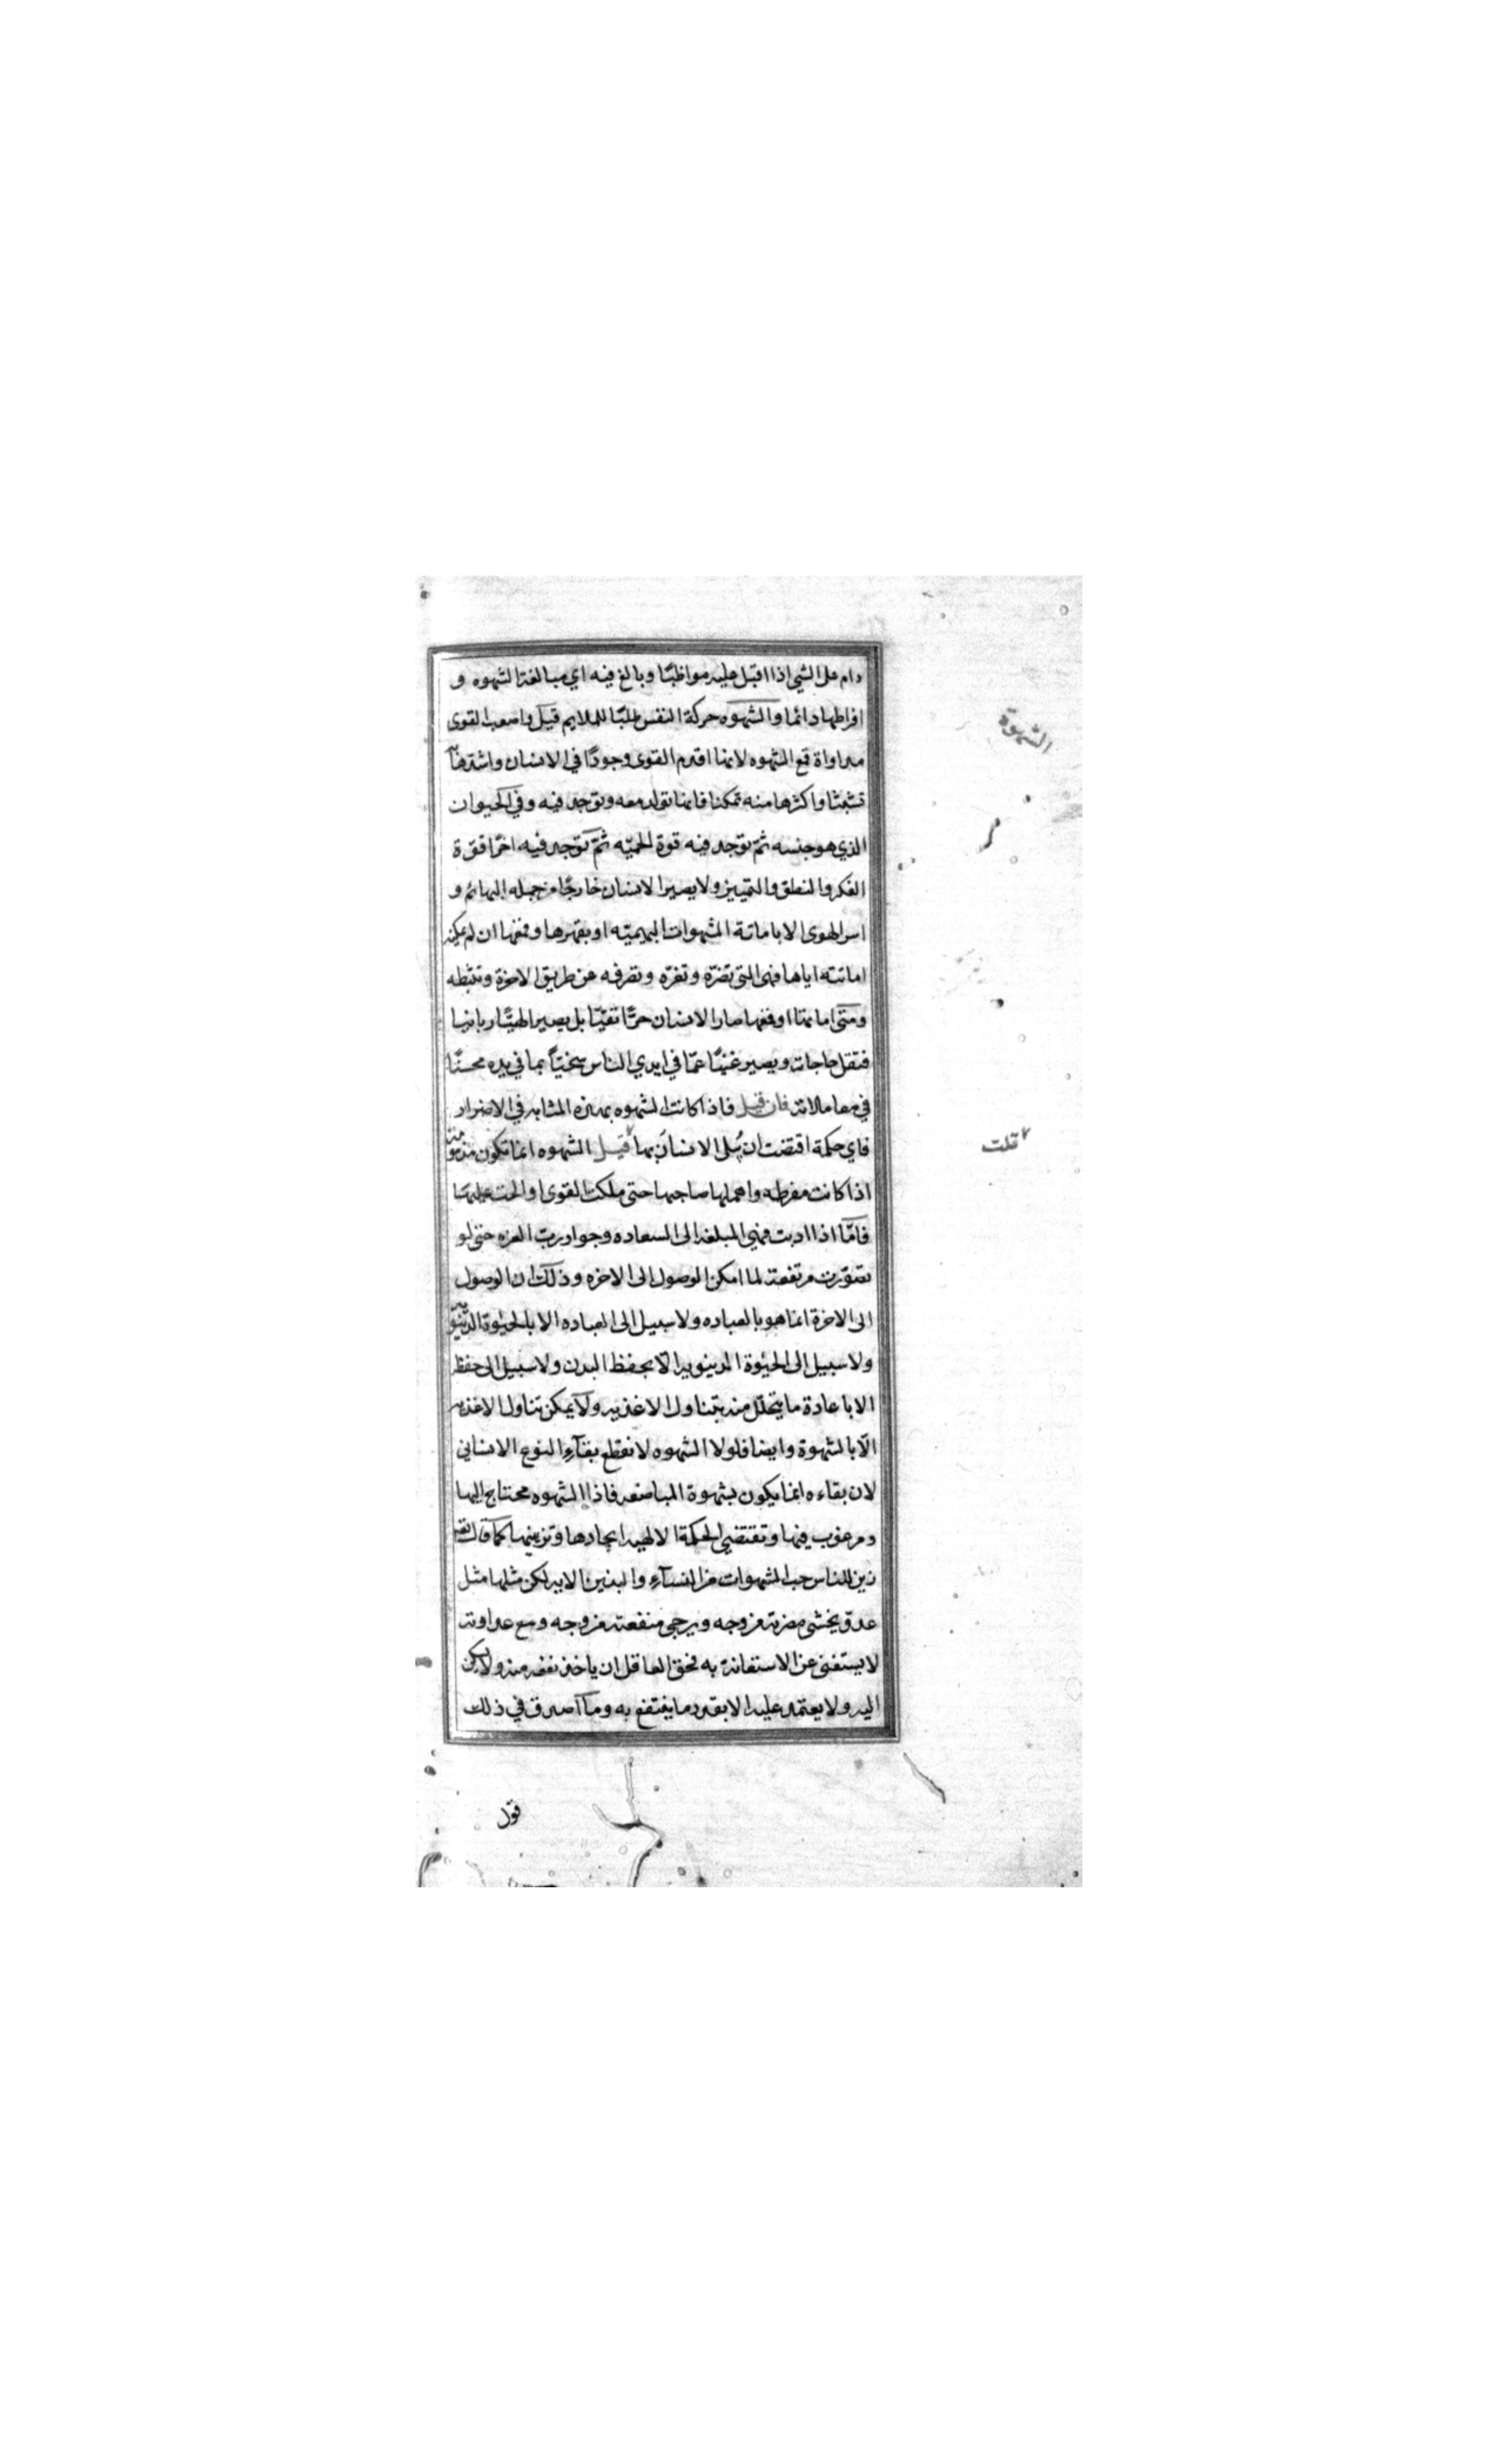 دام على الشي اذا اقبل عليه مواظبًا وبالغ فيه اي مبالغة الشهوه و
افراطها دائما والشهوه حركة النفس طلبًا للملايم قيل واصعب القوى
مداواة قمع الشهوه لانها اقدم القوى وجودًا في الانسان واشدها به
تشبثا واكثرها منه تمكنا فانها تولد معه وتوجد فيه وفي الحيوان
الذي هو جنسه ثمّ توجد فيه قوة الحميّه ثمّ توجد فيه اخرًا قوّة
الفكر والنطق والتمييز ولا يصير الانسان خارجًا من جمله البهائم و
اسر الهوى الا باماتة الشهوات البهيميّه او بقهرها وقمعها ان لم يمكنه
اماتته اياها فهى التى تضرّه وتغرّه وتصرفه عن طريق الاخرة وتثبطه
ومتى اماتها او قمعها صار الانسان حرًّا تقيّا بل يصير الهيًّا ربانيا
فتقل حاجاته ويصير غنيًّا عمّا في ايدي الناس سخيًّا بما في يده محسنًا
في معاملاته فان قيل فاذا كانت الشهوه بهذه المثابه في الاضرار
فاي حكمة اقتضت ان يُبلى الانسان بها قيل الشهوه انما تكون مذمومة
اذا كانت مفرطه واهملها صاحبها حتى ملكت القوى
فامّا اذا ادبت فهي المبلغه الى السعاده وجوار ربّ العزه حتى لو
تصوّرت مرتفعة لما امكن الوصول الى الاخره وذلك ان الوصول
الى الاخرة انما هو بالعباده ولا سبيل الى العباده الا بالحيٰوة الدنيويه
ولا سبيل الى الحيٰوة الدينويه الّا بحفظ البدن ولا سبيل الى حفظه
الا باعادة ما يتحلّل منه بتناول الاغذيه ولا يمكن تناول الاغذيه
الّا بالشهوة وايضا فلولا الشهوه لانقطع بقآء النوع الانسانى
لان بقاءه انما يكون بشهوة المباضعه فاذا الشهوه محتاج اليها
ومرغوب فيها وتقتضي الحكمة الالهيه ايجادها وتزيينها كما قال تعه
زين للناس حب الشهوات من النسآء والبنين الايه لكن مثلها مثل
عدوّ يخشى مضرته من وجه ويرجى منفعته من وجه ومع عداوته
لا يستغنى عن الاستعانة به فحق العاقل ان ياخذ نفعه منه ولا يسكن
اليه ولا يعتمد عليه الا بقدر ما ينتفع به وما اصدق في ذلك
قول
الشهوة
قلت